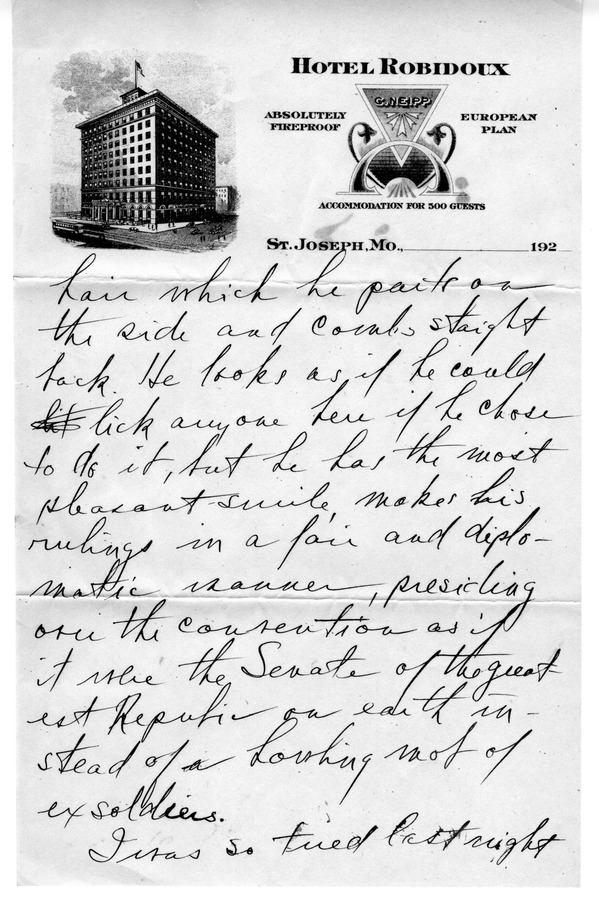 HOTEL ROBIDOUX
C. NEIPP
ABSOLUTELY FIREPROOF
EUROPEAN PLAN
ACCOMMODATION FOR 500 GUESTS
ST. JOSEPH, MO., 192
hair which he parts on
the side and combs staight
back. He looks as if he could
lick anyone here if he chose
to do it, but he has the most
pleasant smile, makes his
rulings in a fair and diplo-
matic manner, presiding
over the convention as if
it were the Senate of the great-
est Republic on earth in-
stead of a howling mob of
ex soldiers.
I was so tired last night